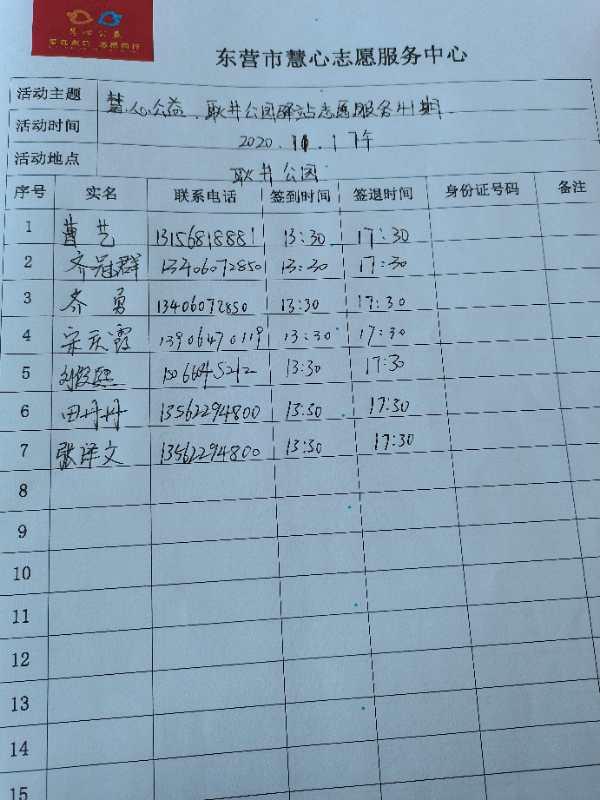 慧心公益
东营市慧心志愿服务中心
活动主题 慧心公益、耿井公园驿站志愿服务41期
活动时间 2020.11.17午
活动地点 耿井公园
序号 实名 联系电话 签到时间 签退时间 身份证号码 备注
1 曹艺 13156818881 13:30 17:30
2 齐冠群 13406072850 13:30 17:30
3 齐勇 13406072850 13:30 17:30
4 宋庆霞 13906470119 13:30 17:30
5 13:30 17:30
6 田丹丹 13562294800 13:30 17:30
7 张译文 13562294800 13:30 17:30
8
9
10
11
12
13
14
15